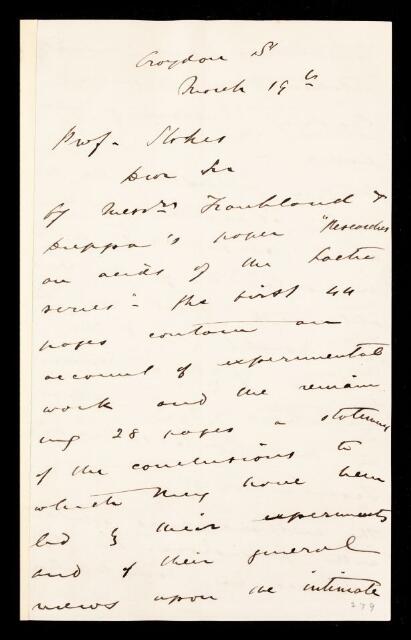 Croydon St
March 19th
Prof. Stokes
Dear Sir
Of Messrs Frankland &
Duppa's paper "Researches
on acids of the lactic
series" the first 44
pages contain an
account of experimental
work and the remain
ing 28 pages a statement
of the conclusions to
which they have been
led by their experiments
and of their general
views upon the intimate
279